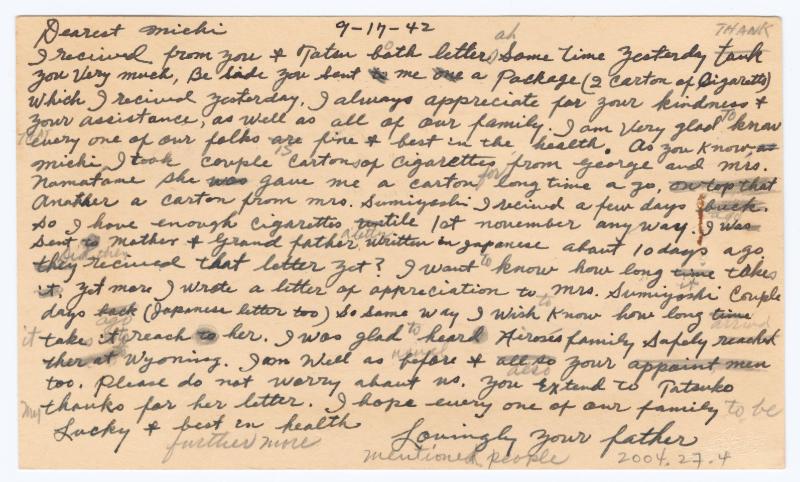 Dearest Michi 9-17-42 ah THANK
I recived from you & Tatsu both letters Some time yesterday tank
you very much, Be side you sent to me one a Package (2 carton of Cigaretts)
Which I recived yesterday. I always appreciate for your kindness &
your assistance, as well as all of our family. I am Very glad to know
every one of our folks are fine & best in the health. As you know, as
Michi I took couple Cartons of cigarettes from George and Mrs.
Namatame she was gave me a carton for long time a go, on top that
Another a carton from Mrs. Sumiyoshi I recived a few days back.
So I have enough Cigarettes untile 1st november any way. I was
Sent to Mother & Grand father a letter Written in Japanese about 10 days ago
they recived that letter yet? I want to know how long time takes
it. yet more I wrote a letter of appreciation to Mrs. Sumiyoshi Couple
days back (Japanese letter too) So Same way I Wish to Know how long time
it take it reach to her. I was glad to heard Hiroses family Safely reached
ther at Wyoming. I am Well as before & all so your appoint men
also
too. Please do not worry about us. you Extend to Tatsuko
My thanks for her letter. I hope every one of our family to be
Lucky & best in health
further more Lovingly your father
mentioned people 2004.27.4